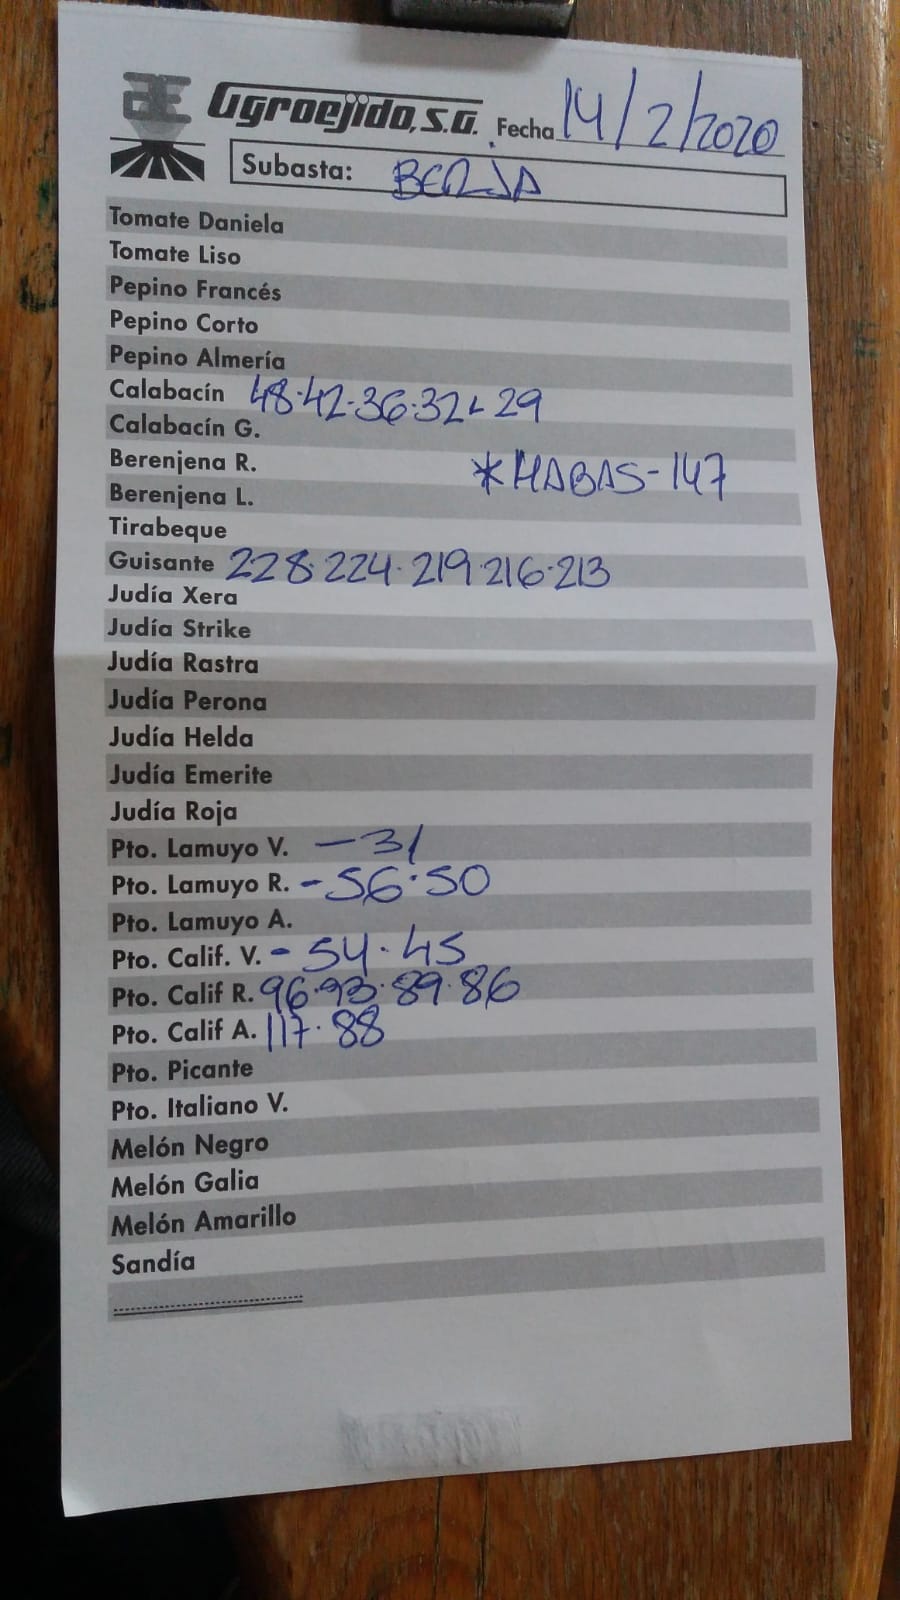 Agroejido, S.A. Fecha 14/2/2020
Subasta: BERJA
Tomate Daniela
Tomate Liso
Pepino Francés
Pepino Corto
Pepino Almería
Calabacín 48-42-36-32-29
Calabacín G.
Berenjena R. *HABAS-147
Berenjena L.
Tirabeque
Guisante 228-224-219-216-213
Judía Xera
Judía Strike
Judía Rastra
Judía Perona
Judía Helda
Judía Emerite
Judía Roja
Pto. Lamuyo V. -31
Pto. Lamuyo R. -56-50
Pto. Lamuyo A.
Pto. Calif. V. -54-45
Pto. Calif R. 96-93-89-86
Pto. Calif A. 117-88
Pto. Picante
Pto. Italiano V.
Melón Negro
Melón Galia
Melón Amarillo
Sandía